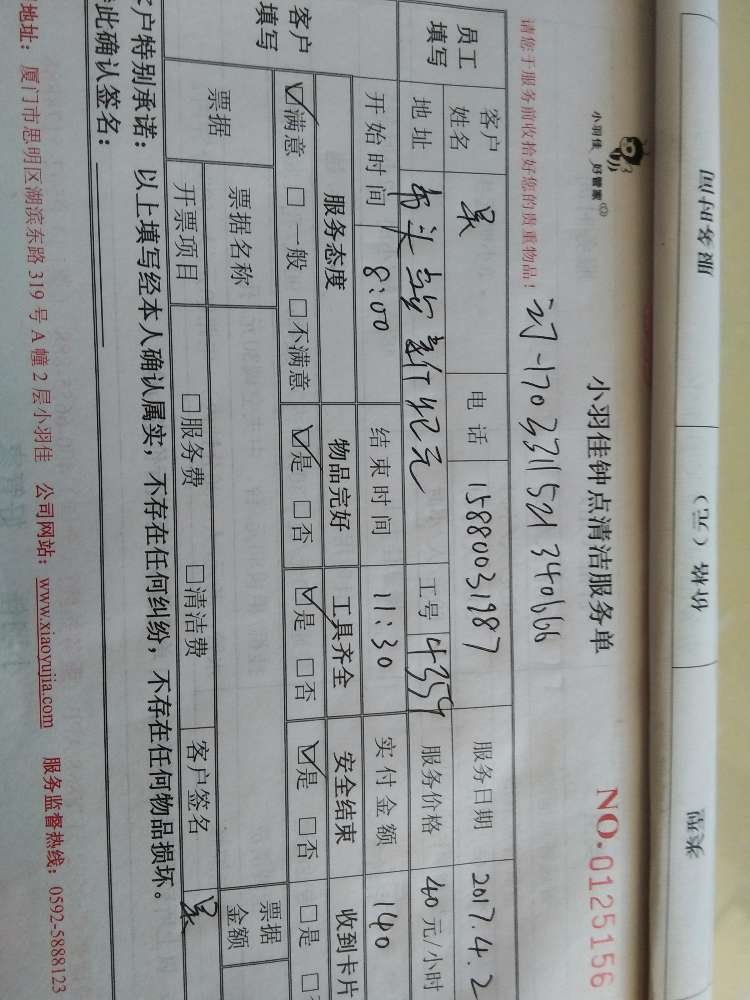 服务时间
价格（元）
类型
小羽佳 好管家
小羽佳钟点清洁服务单
NO.0125156
请您于服务前收拾好您的贵重物品！
订-170331152134066
员工填写 客户姓名 吴 电话 15880031987 服务日期 2017.4.2
地址 新纪元 工号 4359 服务价格 40元/小时
客户填写 开始时间 8:00 结束时间 11:30 实付金额 140
服务态度 物品完好 工具齐全 安全结束 收到卡片
☑满意 □一般 □不满意 ☑是 □否 ☑是 □否 ☑是 □否 □是
票据 票据名称 票据金额
开票项目 □服务费 □清洁费 客户签名 吴
客户特别承诺：以上填写经本人确认属实，不存在任何纠纷，不存在任何物品损坏。
此确认签名：
地址：厦门市思明区湖滨东路319号A幢2层小羽佳 公司网站：www.xiaoyujia.com 服务监督热线：0592-5888123